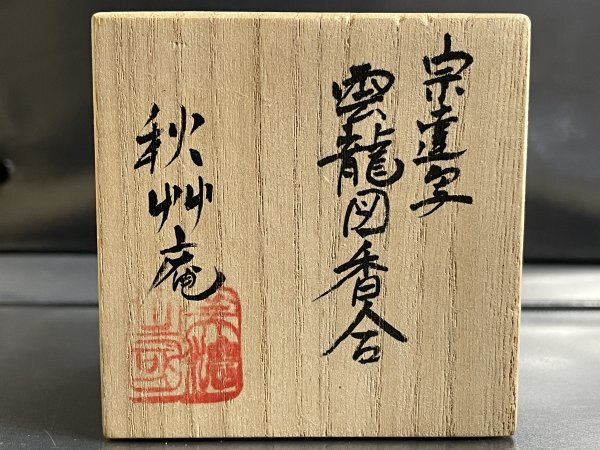 宗達写
雲龍図香合
秋艸庵